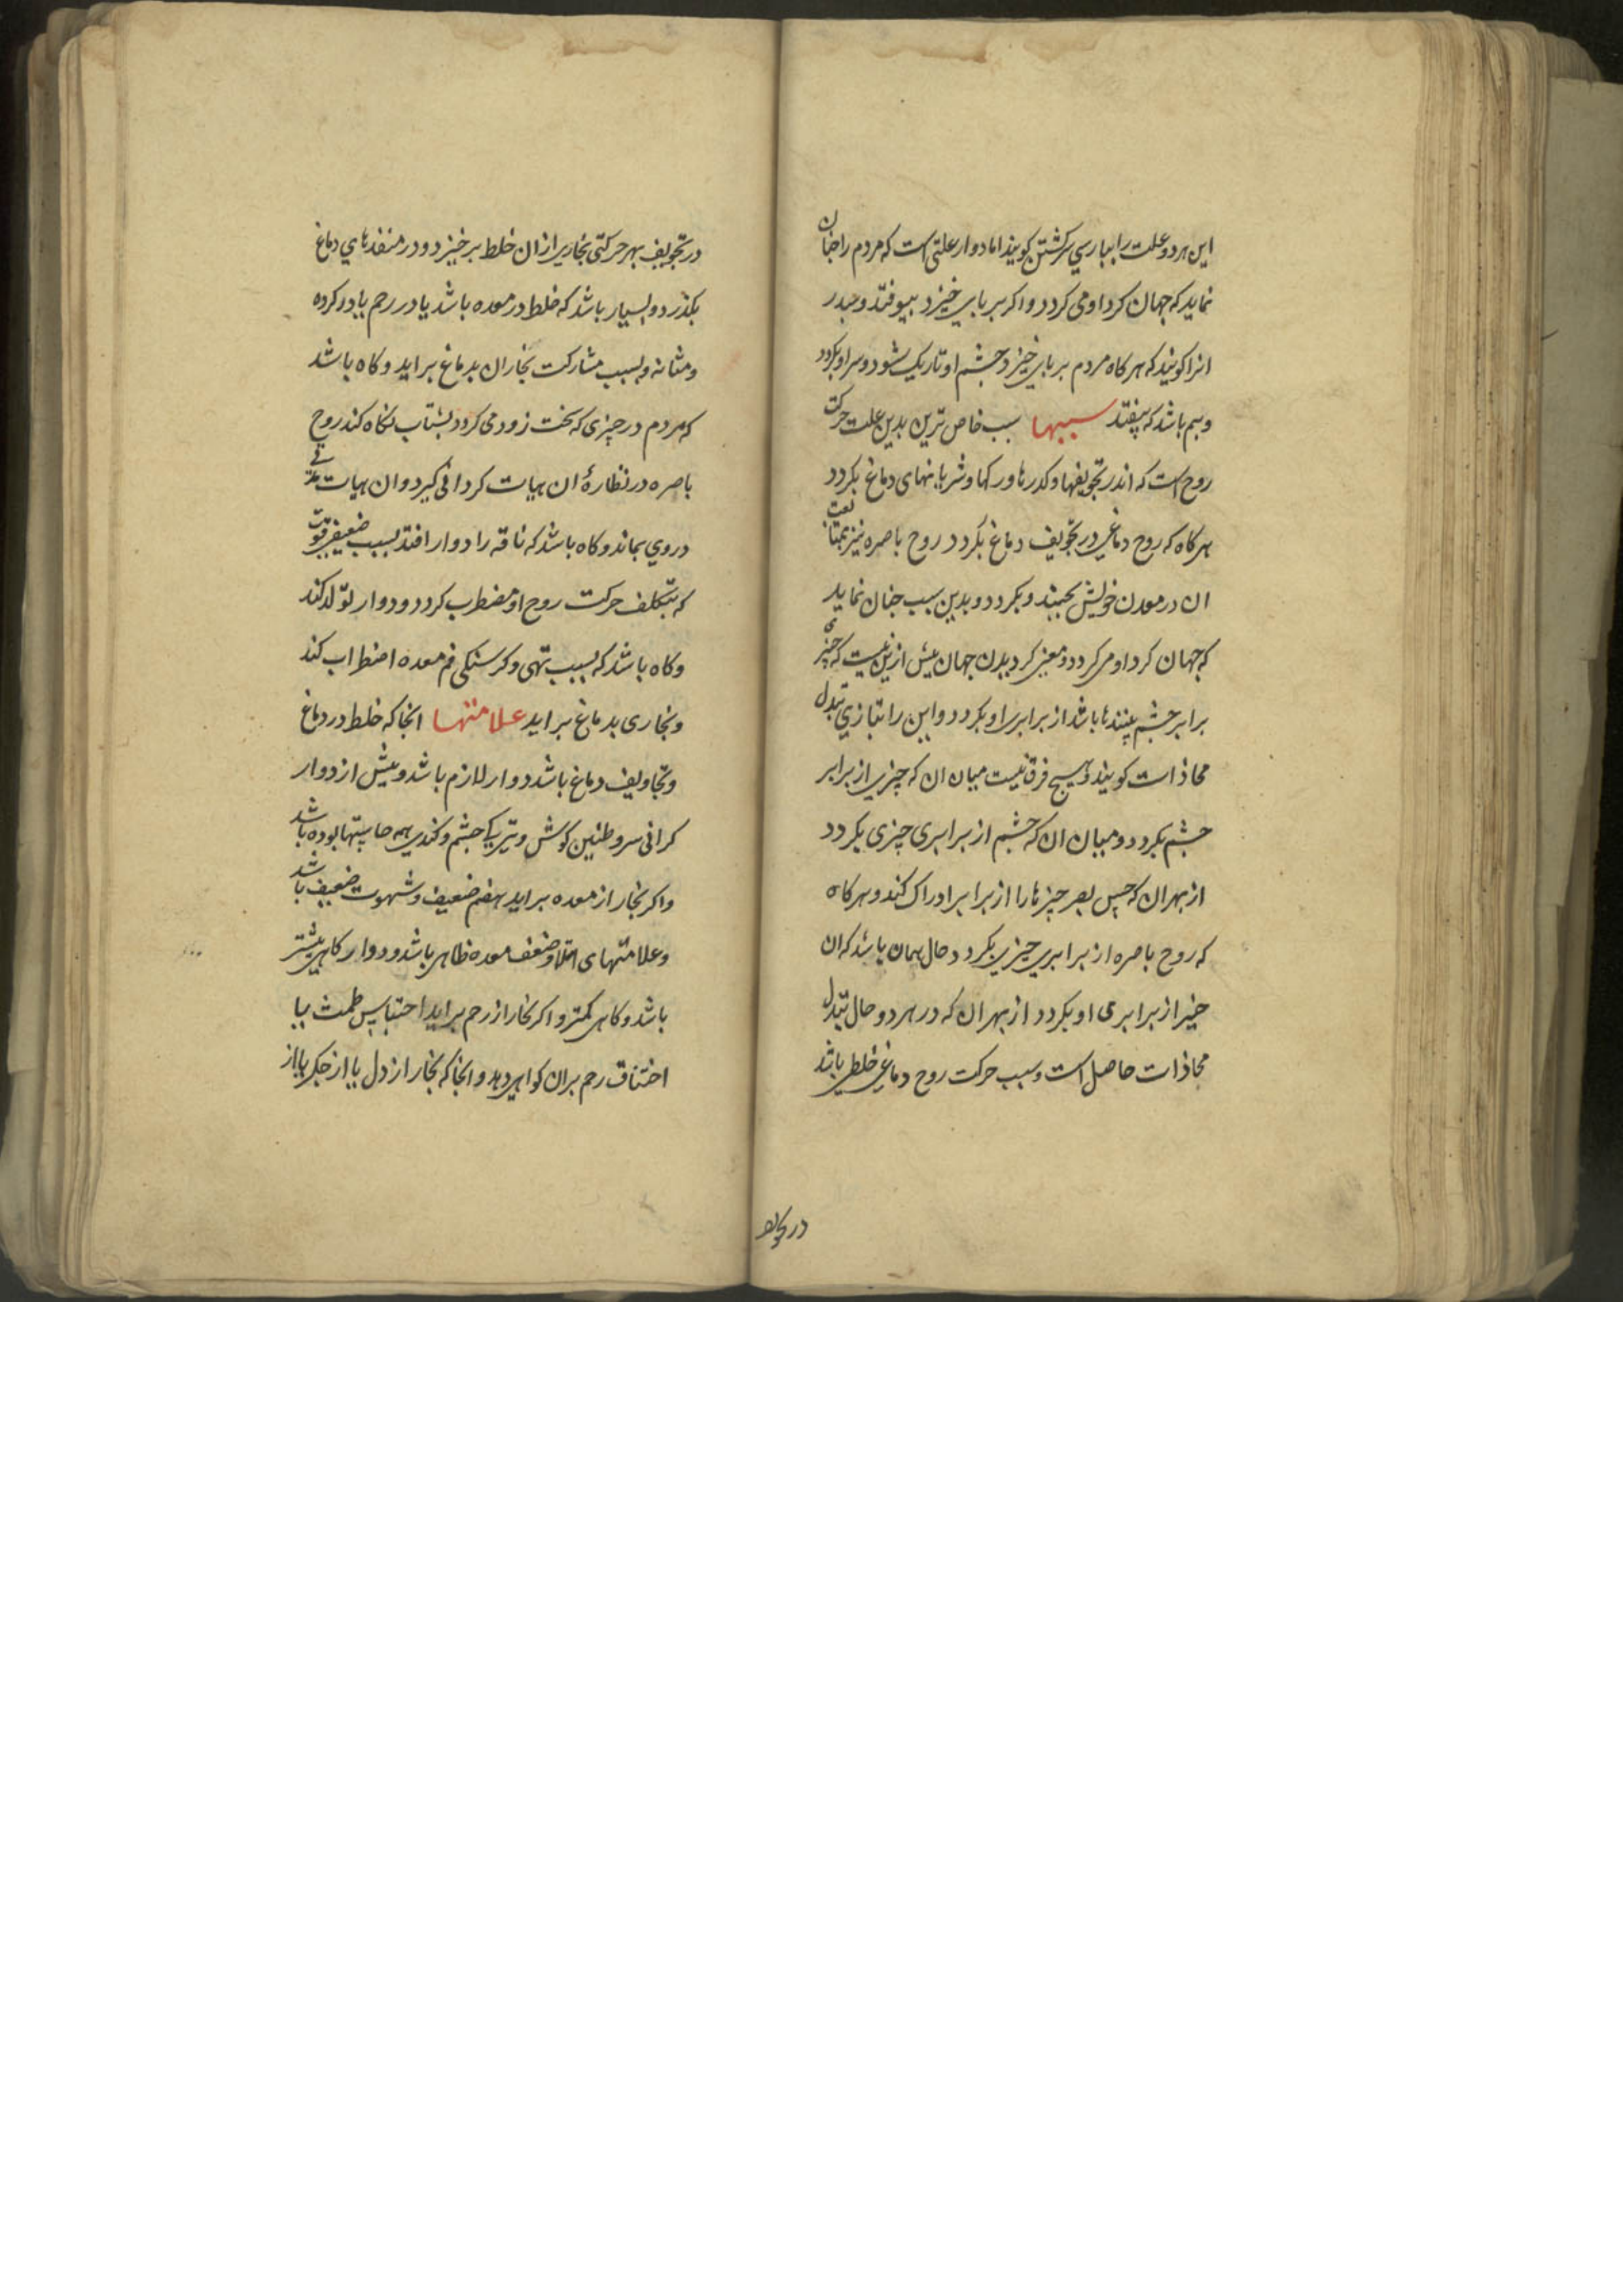 این هر دو علت را بپارسی سرکشتن کویند اما دوار علتی است که مردم را جنان
نماید که جهان کرد او می کردد و اکر بر بای خیزد بیوفتد و سدر
انرا کویند که هر کاه مردم بر بای خیزد جشم او تاریک شود و سر او بکردد
و بیم باشد که بیفتد سببها سبب خاص ترین بدین علت حرکت
روح است که اندر تجویفها و کدرها و رکها و شریانهای دماغ بکردد
هر کاه که روح دماغی در تجویف دماغ بکردد روح باصره نیز بمتابعت
ان در معدن خویش بجنبد و بکردد و بدین سبب جنان نماید
که جهان کرد او می کردد و معنی کردیدن جهان بیش ازین نیست که جیزی
برابر جشم بینندها باشد از برابر او بکردد و این را بتازی تبدل
محاذات کویند و هیچ فرق نیست میان ان که چیزی از برابر
جشم بکردد و میان ان که جشم از برابری چیزی بکردد
از بهر ان که حس بصر جیزها را از برابر ادراک کند و هر کاه
که روح باصره از برابری جیزی بکردد حال همان باشد که ان
جیز از برابری او بکردد از بهر ان که در هر دو حال تبدل
محاذات حاصل است و سبب حرکت روح دماغی خلطی باشد
در تجویف
در تجویف بهر حرکتی بخاری از ان خلط بر خیزد و در منفذهای دماغ
بکذرد و بسیار باشد که خلط در معده باشد یا در رحم یا در کرده
و مثانه و بسبب مشارکت بخار ان بدماغ براید و کاه باشد
که مردم در چیزی که سخت زود می کردد بشتاب نکاه کند روح
باصره در نظارۀ ان هیات کردانی کیرد و ان هیات مدتی
در وی بماند و کاه باشد که ناقه را دوار افتد بسبب ضعیفی قوت
که بتکلف حرکت روح او مضطرب کردد و دوار تولد کند
و کاه باشد که بسبب تهی و کرسنکی فم معده اضطراب کند
و بخاری بدماغ براید علامتها انجا که خلط در دماغ
و تجاویف دماغ باشد دوار لازم باشد و بیش از دوار
کرانی سر و طنین کوش و تیریکی جشم و کندی همه حاستها بوده باشد
و اکر بخار از معده براید هضم ضعیف و شهوت ضعیف باشد
و علامتهای امتلا و ضعف معده ظاهر باشد و دوار کاهی بیشتر
باشد و کاهی کمتر و اکر بخار از رحم براید احتباس طمث یا
اختناق رحم بران کواهی دهد و انجا که بخار از دل یا از جکر یا از